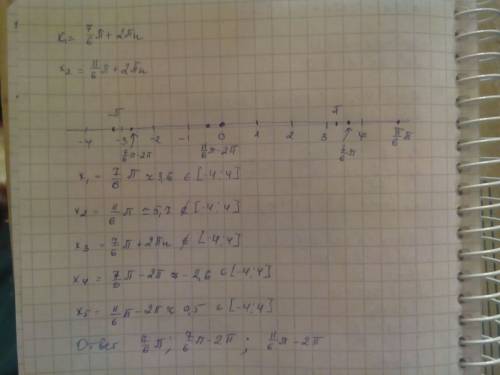 x₁ = 7/6 π + 2πn
x₂ = 11/6 π + 2πn
-π π
-4 -3 -2 -1 0 1 2 3 4
7/6 π-2π 11/6 π-2π 7/6 π 11/6 π
x₁ = 7/6 π ≈ 3,6 ∈ [-4;4]
x₂ = 11/6 π ≈ 5,7 ∉ [-4;4]
x₃ = 7/6 π + 2πn ∉ [-4;4]
x₄ = 7/6 π - 2π ≈ -2,6 ∈ [-4;4]
x₅ = 11/6 π - 2π ≈ 0,5 ∈ [-4;4]
Ответ 7/6 π; 7/6 π - 2π; 11/6 π - 2π